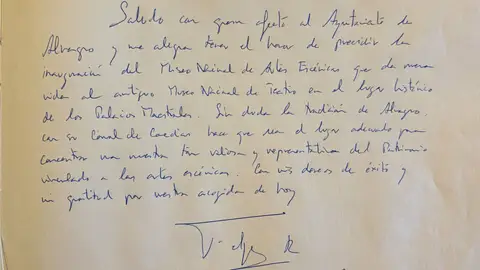 Saludo con gran afecto al Ayuntamiento de
Almagro y me alegra tener el honor de presidir la
inauguración del Museo Nacional de Artes Escénicas que da nueva
vida al antiguo Museo Nacional de Teatro en el lugar histórico
de los Palacios Maestrales. Sin duda la tradición de Almagro,
con su Corral de Comedias hace que sea el lugar adecuado para
concentrar una muestra tan valiosa y representativa del Patrimonio
vinculado a las artes escénicas. Con mis deseos de éxito y
mi gratitud por vuestra acogida de hoy
R